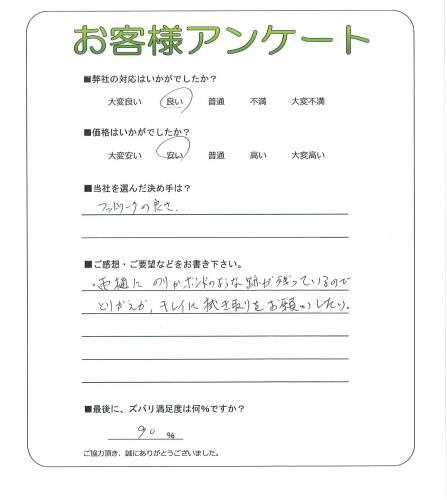 お客様アンケート
■弊社の対応はいかがでしたか?
大変良い 良い 普通 不満 大変不満
■価格はいかがでしたか?
大変安い 安い 普通 高い 大変高い
■当社を選んだ決め手は?
フットワークの良さ.
■ご感想・ご要望などをお書き下さい。
・雨樋に のりかボンドのような跡が残っているので
とりかえか、キレイに拭き取りをお願いしたい。
■最後に、ズバリ満足度は何%ですか?
90 %
ご協力頂き、誠にありがとうございました。